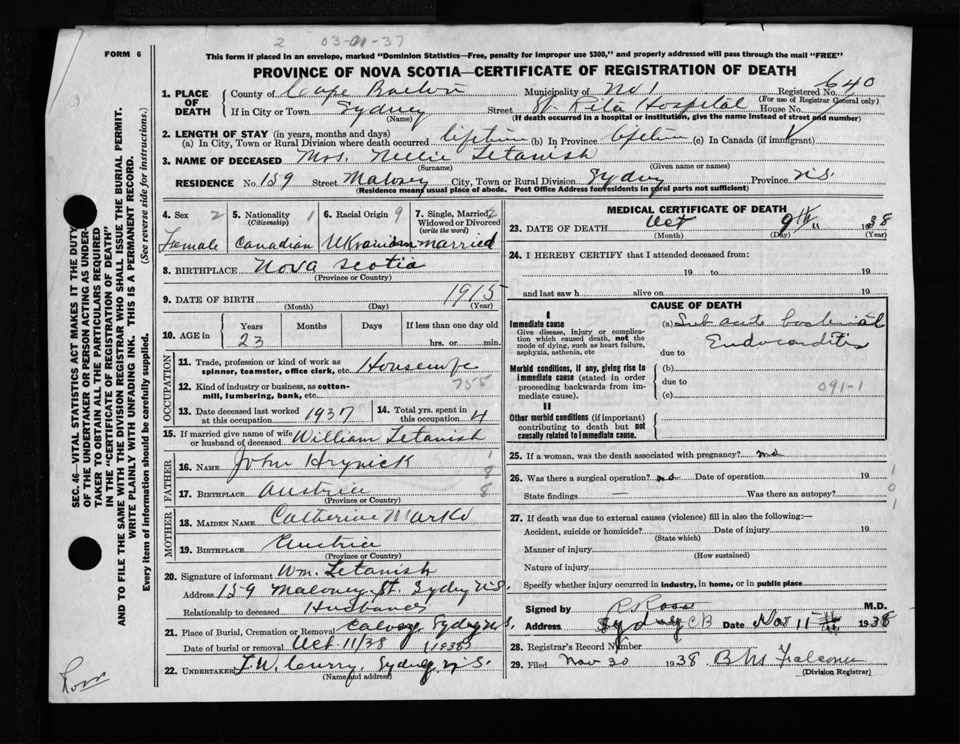 2 03-01-37
FORM 6
This form if placed in an envelope, marked "Dominion Statistics—Free, penalty for improper use $300," and properly addressed will pass through the mail "FREE"
PROVINCE OF NOVA SCOTIA—CERTIFICATE OF REGISTRATION OF DEATH
SEC. 46—VITAL STATISTICS ACT MAKES IT THE DUTY
OF THE UNDERTAKER OR PERSON ACTING AS UNDER-
TAKER TO OBTAIN ALL THE PARTICULARS REQUIRED
IN THE "CERTIFICATE OF REGISTRATION OF DEATH"
AND TO FILE THE SAME WITH THE DIVISION REGISTRAR WHO SHALL ISSUE THE BURIAL PERMIT.
WRITE PLAINLY WITH UNFADING INK. THIS IS A PERMANENT RECORD.
Every item of information should be carefully supplied. (See reverse side for instructions.)
1. PLACE OF DEATH County of Cape Breton Municipality of No 1 Registered No. 640
(For use of Registrar General only)
If in City or Town Sydney Street St. Rita Hospital House No.
(Name) (If death occurred in a hospital or institution, give the name instead of street and number)
2. LENGTH OF STAY (in years, months and days)
(a) In City, Town or Rural Division where death occurred lifetime (b) In Province lifetime (c) In Canada (if immigrant)
3. NAME OF DECEASED Mrs. Nellie Letanish
(Surname) (Given name or names)
RESIDENCE No. 159 Street Maloney City, Town or Rural Division Sydney Province N.S.
(Residence means usual place of abode. Post Office Address for residents in rural parts not sufficient)
4. Sex 2 5. Nationality 1 6. Racial Origin 9 7. Single, Married, 2
(Citizenship) Widowed or Divorced
(write the word)
Female Canadian Ukrainian married
8. BIRTHPLACE Nova Scotia
(Province or Country)
9. DATE OF BIRTH 1915
(Month) (Day) (Year)
10. AGE in Years Months Days If less than one day old
23 hrs. or min.
OCCUPATION
11. Trade, profession or kind of work as
spinner, teamster, office clerk, etc. Housewife
12. Kind of industry or business, as cotton-
mill, lumbering, bank, etc. 755
13. Date deceased last worked
at this occupation 1937 14. Total yrs. spent in
this occupation 4
15. If married give name of wife
or husband of deceased William Letanish
FATHER
16. NAME John Hrynick 1
17. BIRTHPLACE Austria 8
(Province or Country) 8
MOTHER
18. MAIDEN NAME Catherine Marko
19. BIRTHPLACE Austria
(Province or Country)
20. Signature of informant Wm. Letanish
Address 159 Maloney St. Sydney N.S.
Relationship to deceased Husband
21. Place of Burial, Cremation or Removal Calvary Sydney N.S.
Date of burial or removal Oct 11/38 (1938)
22. UNDERTAKER T.W. Curry, Sydney N.S.
(Name and address)
MEDICAL CERTIFICATE OF DEATH
23. DATE OF DEATH Oct 9th 1938
(Month) (Day) (Year)
24. I HEREBY CERTIFY that I attended deceased from:
19 to 19
and last saw h alive on 19
CAUSE OF DEATH
I
Immediate cause (a) Sub acute bacterial
Give disease, injury or complica-
tion which caused death, not the Endocarditis
mode of dying, such as heart failure,
asphyxia, asthenia, etc due to
Morbid conditions, if any, giving rise to (b)
immediate cause (stated in order due to 091-1
proceeding backwards from im-
mediate cause). (c)
II
Other morbid conditions (if important)
contributing to death but not
causally related to immediate cause.
25. If a woman, was the death associated with pregnancy? no
26. Was there a surgical operation? no Date of operation 19 1
State findings — Was there an autopsy? 0
1
27. If death was due to external causes (violence) fill in also the following:—
Accident, suicide or homicide? Date of injury 19
(State which)
Manner of injury
(How sustained)
Nature of injury
Specify whether injury occurred in industry, in home, or in public place
Signed by R. Ross M.D.
Address Sydney C B Date Nov 11 1938
28. Registrar's Record Number
29. Filed Nov 30 1938 Falconer
(Division Registrar)
Ross